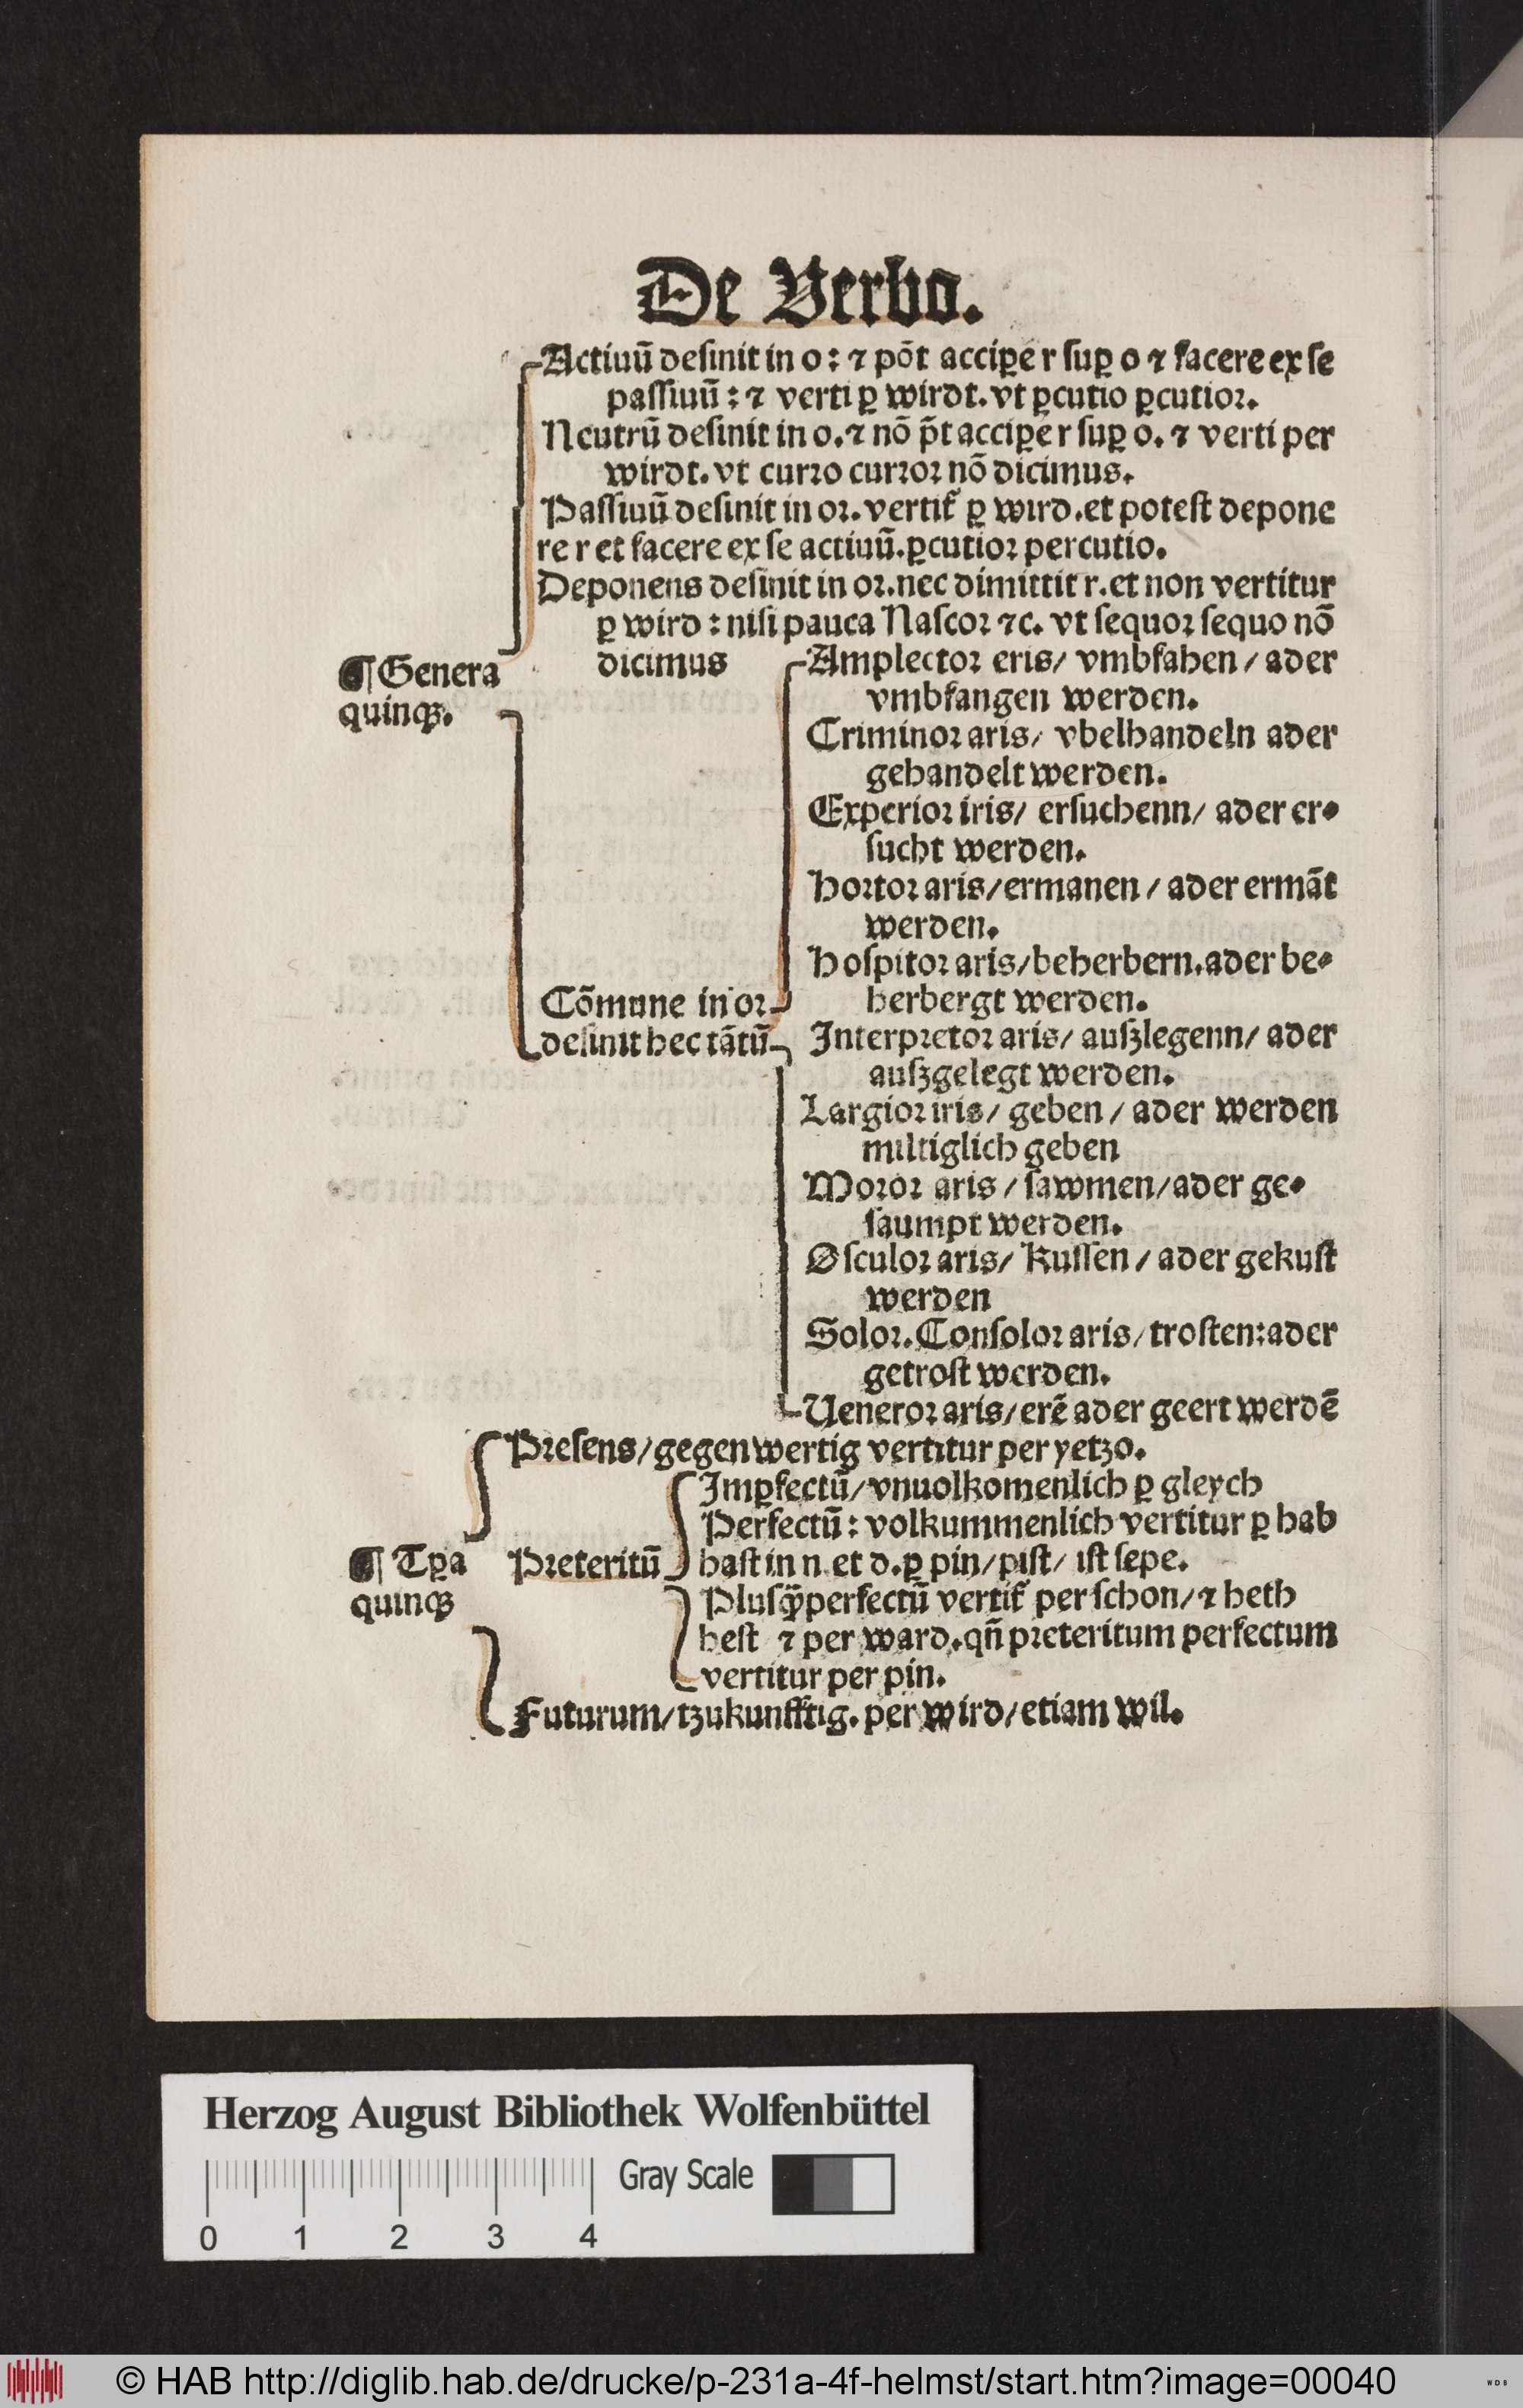 De Verbo.
Actiuū desinit in o: ⁊ põt acciꝑe r suꝑ o ⁊ facere ex se
passiuū: ⁊ verti ꝑ wirdt. vt ꝑcutio ꝑcutior.
Neutrū desinit in o. ⁊ nõ p̃t acciꝑe r suꝑ o. ⁊ verti per
wirdt. vt curro curror nõ dicimus.
Passiuū desinit in or. vertit᷑ ꝑ wird. et potest depone
re r et facere ex se actiuū. ꝑcutior percutio.
Deponens desinit in or. nec dimittit r. et non vertitur
ꝑ wird: nisi pauca Nascor ⁊c. vt sequor sequo nõ
dicimus
¶ Genera
quinqꝫ.
Amplector eris/ vmbfahen/ ader
vmbfangen werden.
Criminor aris/ vbelhandeln ader
gehandelt werden.
Experior iris/ ersuchenn/ ader er⸗
sucht werden.
Hortor aris/ ermanen/ ader ermãt
werden.
Hospitor aris/ beherbern. ader be⸗
herbergt werden.
Cõmune in or
desinit hec tãtū
Interpretor aris/ außlegenn/ ader
außgelegt werden.
Largior iris/ geben/ ader werden
miltiglich geben
Moror aris/ sawmen/ ader ge⸗
saumpt werden.
Osculor aris/ Kussen/ ader gekust
werden
Solor. Consolor aris/ trosten: ader
getrost werden.
Ueneror aris/ erẽ ader geert werdẽ
Presens/ gegenwertig vertitur per yetzo.
Imꝑfectū/ vnuolkomenlich ꝑ gleych
Perfectū: volkummenlich vertitur ꝑ hab
¶ Tꝑa
quinqꝫ
Preteritū
hast in n. et d. ꝑ pin/ pist/ ist sepe.
Plusq̃perfectū vertit᷑ per schon/ ⁊ heth
hest ⁊ per ward. qñ preteritum perfectum
vertitur per pin.
Futurum/ tzukunfftig. per wird/ etiam wil.
Herzog August Bibliothek Wolfenbüttel
Gray Scale
0 1 2 3 4
© HAB http://diglib.hab.de/drucke/p-231a-4f-helmst/start.htm?image=00040
WDB